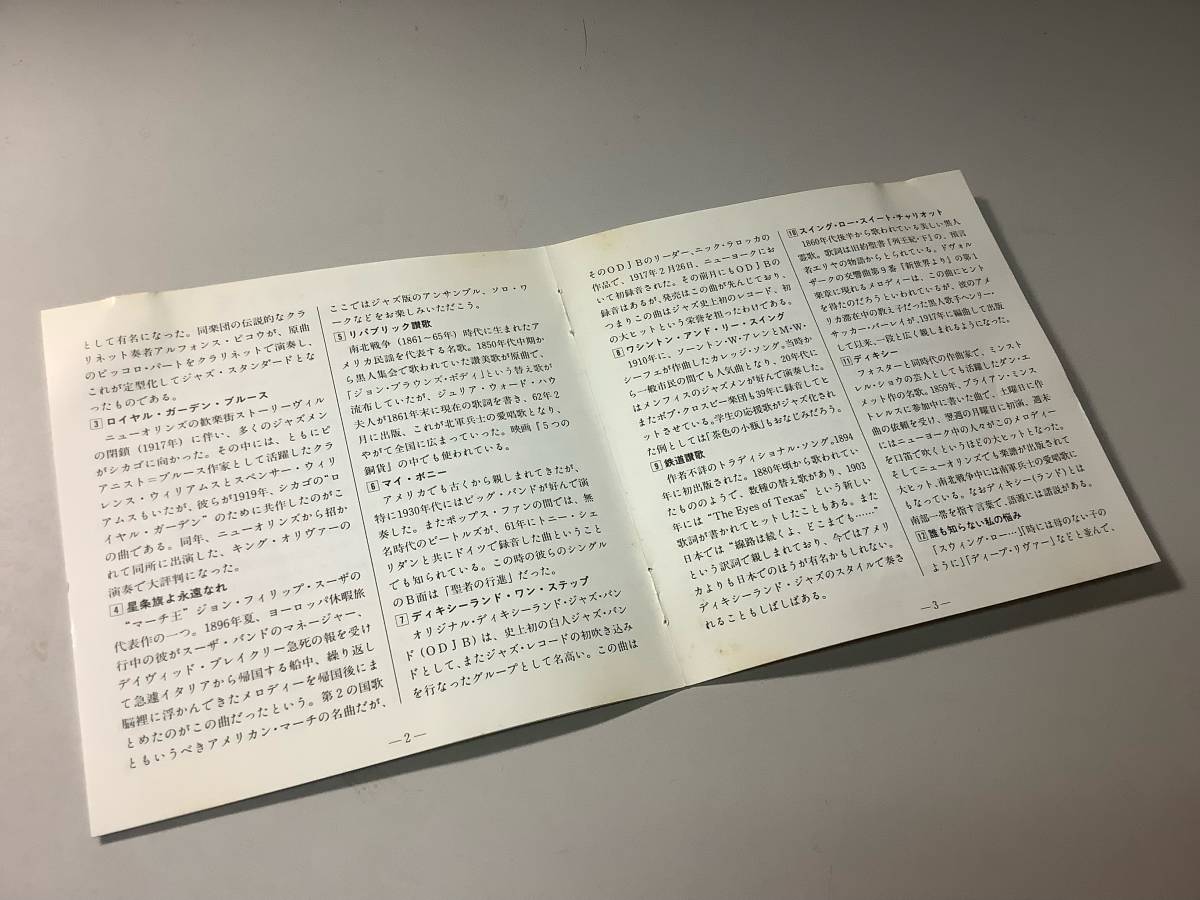 として有名になった。同楽団の伝説的なクラ
リネット奏者アルフォンス・ピコウが、原曲
のピッコロ・パートをクラリネットで演奏し、
これが定型化してジャズ・スタンダードとな
ったものである。
3 ロイヤル・ガーデン・ブルース
ニューオリンズの歓楽街ストーリーヴィル
の閉鎖（1917年）に伴い、多くのジャズメン
がシカゴに向かった。その中には、ともにピ
アニスト＝ブルース作家として活躍したクラ
レンス・ウィリアムスとスペンサー・ウィリ
アムスもいたが、彼らが1919年、シカゴの“ロ
イヤル・ガーデン”のために共作したのがこ
の曲である。同年、ニューオリンズから招か
れて同所に出演した、キング・オリヴァーの
演奏で大評判になった。
4 星条旗よ永遠なれ
“マーチ王”ジョン・フィリップ・スーザの
代表作の一つ。1896年夏、ヨーロッパ休暇旅
行中の彼がスーザ・バンドのマネージャー、
デイヴィッド・ブレイクリー急死の報を受け
て急遽イタリアから帰国する船中、繰り返し
脳裡に浮かんできたメロディーを帰国後にま
とめたのがこの曲だったという。第２の国歌
ともいうべきアメリカン・マーチの名曲だが、
ここではジャズ版のアンサンブル、ソロ・ワ
ークなどをお楽しみいただこう。
5 リパブリック讃歌
南北戦争（1861～65年）時代に生まれたア
メリカ民謡を代表する名歌。1850年代中期か
ら黒人集会で歌われていた讃美歌が原曲で、
「ジョン・ブラウンズ・ボディ」という替え歌が
流布していたが、ジュリア・ウォード・ハウ
夫人が1861年末に現在の歌詞を書き、62年２
月に出版、これが北軍兵士の愛唱歌となり、
やがて全国に広まっていった。映画「５つの
銅貨」の中でも使われている。
6 マイ・ボニー
アメリカでも古くから親しまれてきたが、
特に1930年代にはビッグ・バンドが好んで演
奏した。またポップス・ファンの間では、無
名時代のビートルズが、61年にトニー・シェ
リダンと共にドイツで録音した曲ということ
でも知られている。この時の彼らのシングル
のＢ面は「聖者の行進」だった。
7 ディキシーランド・ワン・ステップ
オリジナル・ディキシーランド・ジャズ・バン
ド（ＯＤＪＢ）は、史上初の白人ジャズ・バン
ドとして、またジャズ・レコードの初吹き込み
を行なったグループとして名高い。この曲は
—2—
そのＯＤＪＢのリーダー、ニック・ラロッカの
作品で、1917年２月26日、ニューヨークにお
いて初録音された。その前月にもＯＤＪＢの
録音はあるが、発売はこの曲が先んじており、
つまりこの曲はジャズ史上初のレコード、初
の大ヒットという栄誉を担ったわけである。
8 ワシントン・アンド・リー・スイング
1910年に、ソーントン・Ｗ・アレンとＭ・Ｗ・
シーフェが作曲したカレッジ・ソング。当時か
ら一般市民の間でも人気曲となり、20年代に
はメンフィスのジャズメンが好んで演奏した。
またボブ・クロスビー楽団も39年に録音してヒ
ットさせている。学生の応援歌がジャズ化され
た例としては「茶色の小瓶」もおなじみだろう。
9 鉄道讃歌
作者不詳のトラディショナル・ソング。1894
年に初出版された。1880年頃から歌われてい
たもののようで、数種の替え歌があり、1903
年には“The Eyes of Texas”という新しい
歌詞が書かれてヒットしたこともある。また
日本では“線路は続くよ、どこまでも……”
という訳詞で親しまれており、今ではアメリ
カよりも日本でのほうが有名かもしれない。
ディキシーランド・ジャズのスタイルで奏さ
れることもしばしばある。
10 スイング・ロー・スイート・チャリオット
1860年代後半から歌われている美しい黒人
霊歌。歌詞は旧約聖書『列王紀・下』の、預言
者エリヤの物語からとられている。ドヴォル
ザークの交響曲第９番「新世界より」の第１
楽章に現れるメロディーは、この曲にヒント
を得たのだろうといわれているが、彼のアメ
リカ滞在中の教え子だった黒人歌手ヘンリー・
サッカー・バーレイが、1917年に編曲して出版
して以来、一段と広く親しまれるようになった。
11 ディキシー
フォスターと同時代の作曲家で、ミンスト
レル・ショウの芸人としても活躍したダン・エ
メット作の名歌。1859年、ブライアン・ミンス
トレルスに参加中に書いた曲で、土曜日に作
曲の依頼を受け、翌週の月曜日に初演、週末
にはニューヨーク中の人々がこのメロディー
を口笛で吹くというほどの大ヒットとなった。
そしてニューオリンズでも楽譜が出版されて
大ヒット、南北戦争中には南軍兵士の愛唱歌に
もなっている。なおディキシー(ランド)とは
南部一帯を指す言葉で、語源には諸説がある。
12 誰も知らない私の悩み
「スウィング・ロー…」「時には母のない子の
ように」「ディープ・リヴァー」などと並んで、
—3—